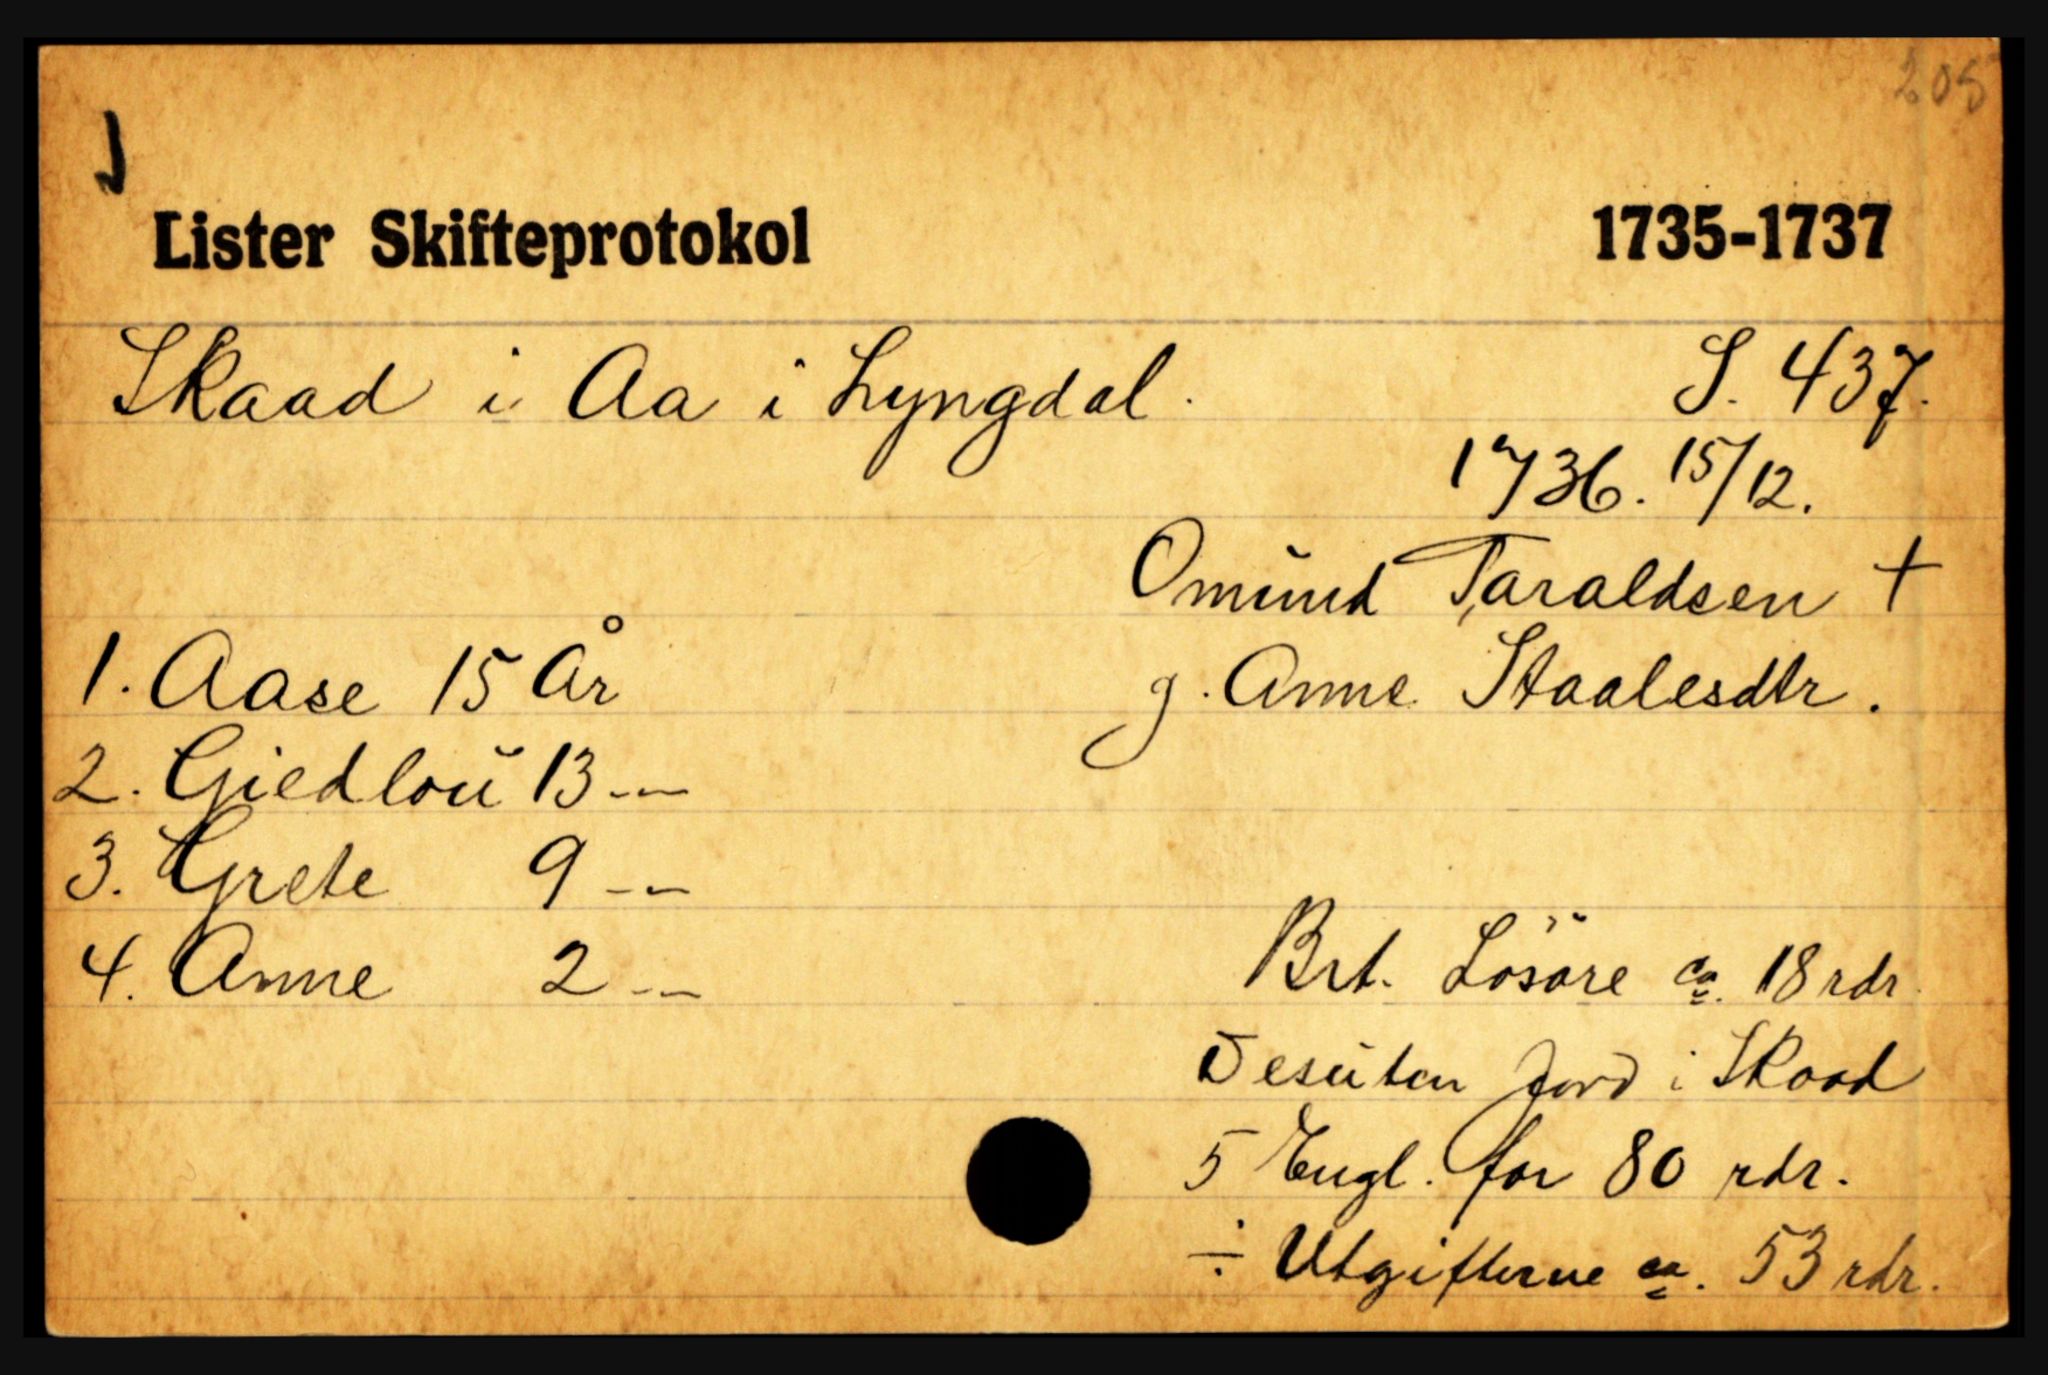 205
Lister Skifteprotokol 1735-1737
Skaad i Aa i Lyngdal. S. 437.
1736. 15/12.
Omŭnd Taraldsen +
1. Aase 15 År g. Anne Staalesdtr.
2. Giedloŭ 13 -〃-
3. Grete 9 -〃-
4. Anne 2 -〃- Brt. Løsøre ca. 18 rdr.
Desŭten Jord i Skaad
5 Engl. for 80 rdr.
÷ Utgifterne ca. 53 rdr.